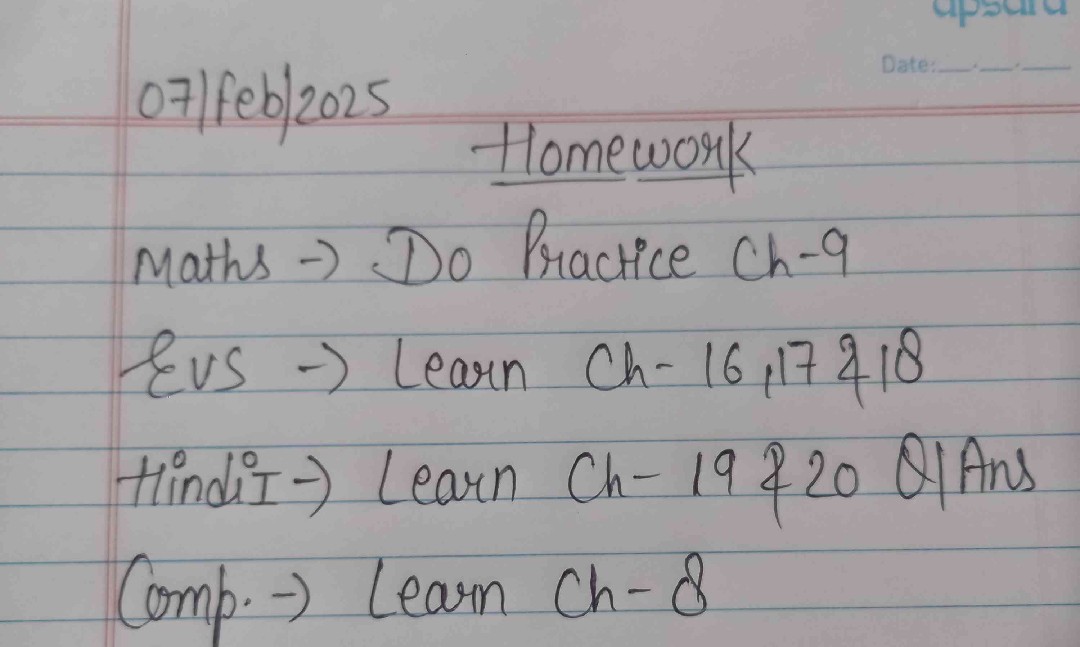 apsara
Date:__.__.__
07/Feb/2025
Homework
Maths -> Do Practice Ch-9
EVS -> Learn Ch- 16,17 & 18
Hindi I -> Learn Ch- 19 & 20 Q/Ans
Comp. -> Learn Ch- 8